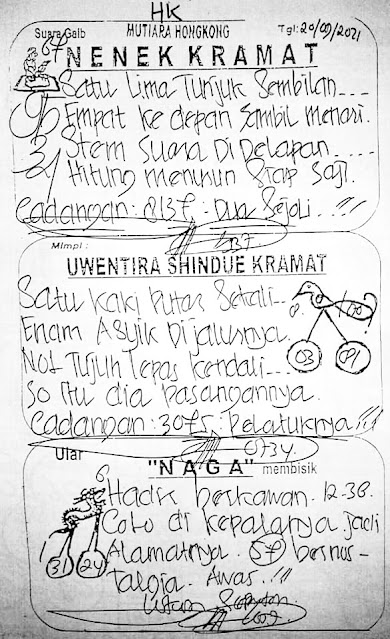 HK
Suara Gaib MUTIARA HONGKONG Tgl: 20/09/2021
NENEK KRAMAT
67
Satu Lima Tunjuk Sembilan---
Empat ke depan Sambil menari.
Stem Suara Di Delapan.....
Hitung menurun Siap Saji.
Cadangan: 8137: Dua Sejoli..!!!
Mimpi:
UWENTIRA SHINDUE KRAMAT
Satu kaki Putar Sekali--
Enam Asyik Di jalurnya.
Not Tujuh Lepas kendali---
So Itu dia pasangannya.
03 81
Cadangan: 3075: Pelatuknya!!!
0734.
Ular "NAGA" membisik
6 Hadir berkawan. 12-38.
Coto di kepalanya jadi
Alamatnya. 57 bernos-
talgia. Awas.!!!
31 24